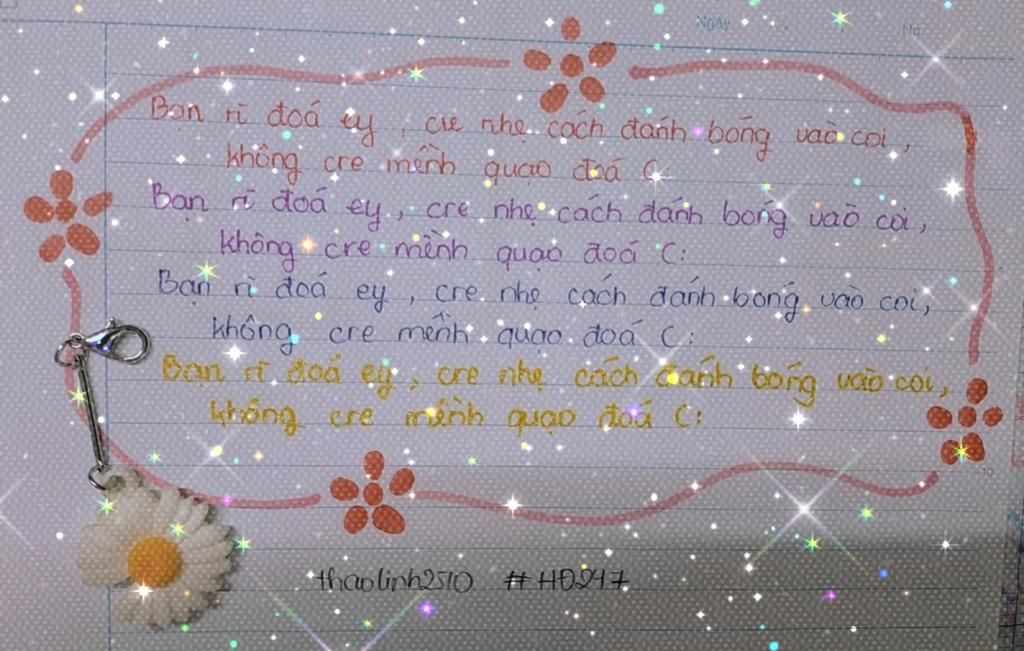 Ngày No.
Bạn rì đoá ey , cre nhẹ cách đánh bońg vaò coi ,
không cre mềnh quạo đoá C:
Bạn rì đoá ey , cre nhẹ cách đánh bońg vaò coi ,
không cre mềnh quạo đoá C:
Bạn rì đoá ey , cre nhẹ cách đánh bońg vaò coi,
không cre mềnh quạo đoá C:
Bạn rì đoá ey , cre nhẹ cách đánh bońg vaò coi,
không cre mềnh quạo đoá C:
10
thaolinh2510 #HĐ247